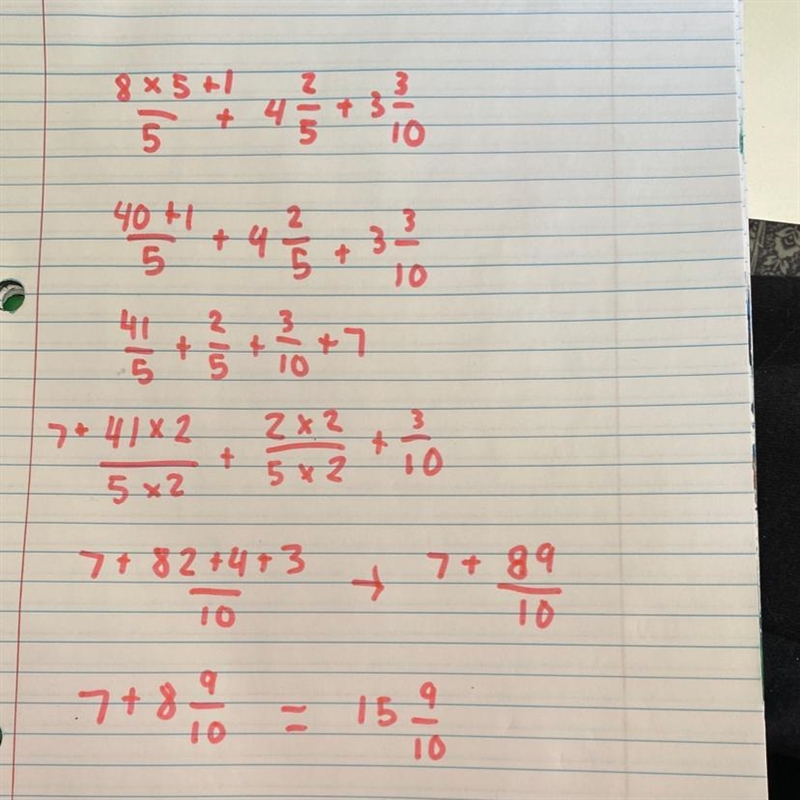 8 × 5 + 1 / 5 + 4 2/5 + 3 3/10
40 + 1 / 5 + 4 2/5 + 3 3/10
41/5 + 2/5 + 3/10 + 7
7 + 41 × 2 / 5 × 2 + 2 × 2 / 5 × 2 + 3/10
7 + 82 + 4 + 3 / 10 → 7 + 89/10
7 + 8 9/10 = 15 9/10